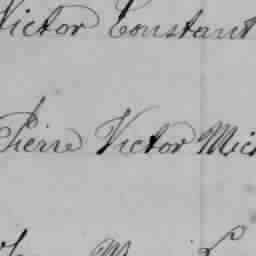 Victor Constant
Pierre Victor Mich